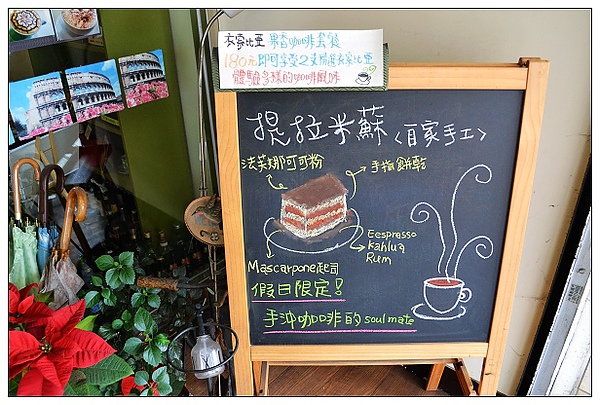 衣索比亞 果香咖啡套餐
180元即可享受2支精選衣索比亞
體驗多樣的咖啡風味
提拉米蘇〈自家手工〉
法芙娜可可粉
手指餅乾
Eespresso
Kahlua
Rum
Mascarpone起司
假日限定!
手沖咖啡的soulmate